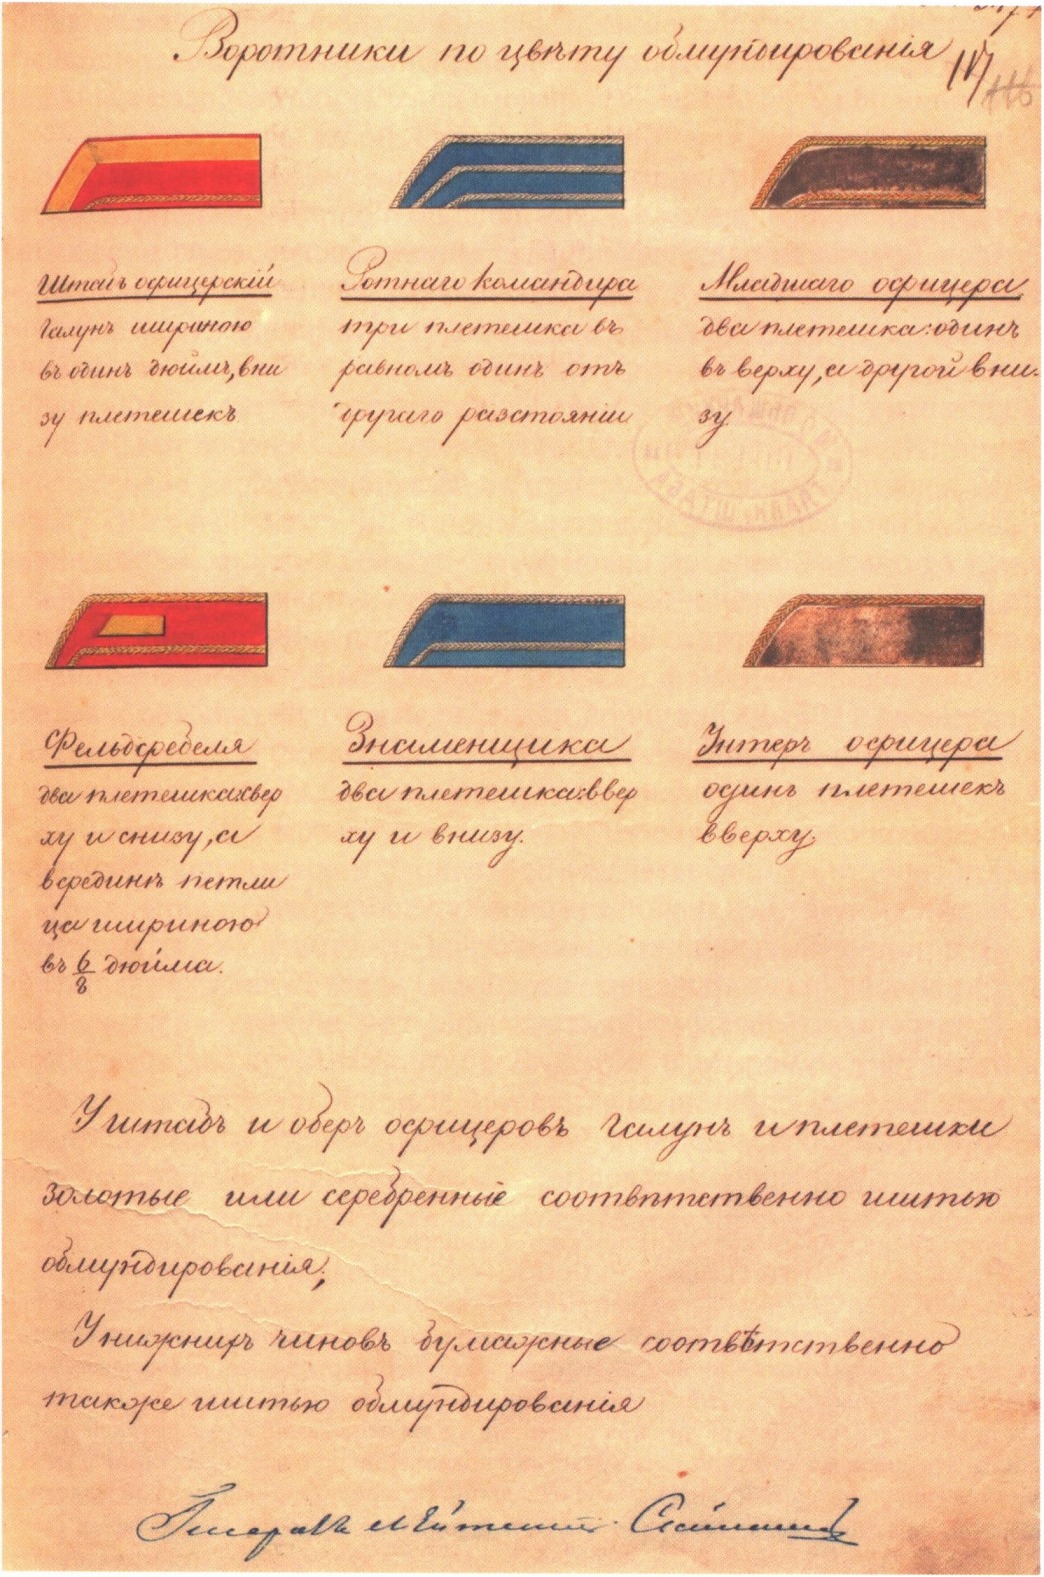 Воротники по цвѣту обмундированія
117
116
Штабъ офицерскій
Галунъ шириною
въ одинъ дюймъ, вни
зу плетешекъ
Ротнаго командира
три плетешка въ
равномъ одинъ отъ
другаго разстояніи
Младшаго офицера
два плетешка: одинъ
въ верху, а другой вни-
зу
Фельдфебеля
два плетешка: ввер
ху и снизу, а
всрединѣ петли
ца шириною
въ 6/8 дюйма.
Знаменщика
два плетешка: ввер
ху и внизу.
Унтеръ офицера
одинъ плетешекъ
вверху.
У штабъ и оберъ офицеровъ галунъ и плетешки
золотые или серебренные соотвѣтственно шитью
обмундированія;
У нижнихъ чиновъ бумажные соотвѣтственно
также шитью обмундированія
Генералъ Лейтенантъ